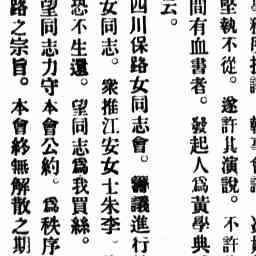 堅執不從。遂許其演說。不許
間有血書者。發起人爲黃學典
云。
四川保路女同志會。籌議進行
女同志。衆推江安女士朱李
恐不生還。望同志爲我買絲。
望同志力守本會公約。爲秩序
路之宗旨。本會終無解散之期